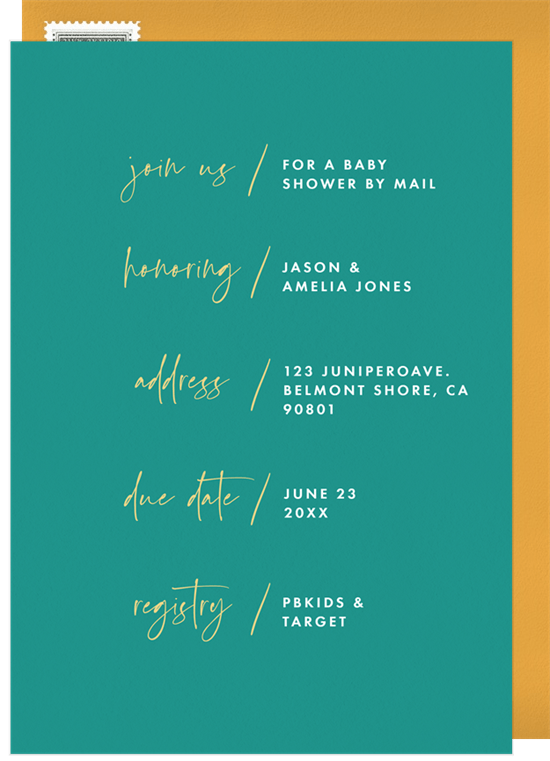 join us / FOR A BABY
SHOWER BY MAIL
honoring / JASON &
AMELIA JONES
address / 123 JUNIPEROAVE.
BELMONT SHORE, CA
90801
due date / JUNE 23
20XX
registry / PBKIDS &
TARGET